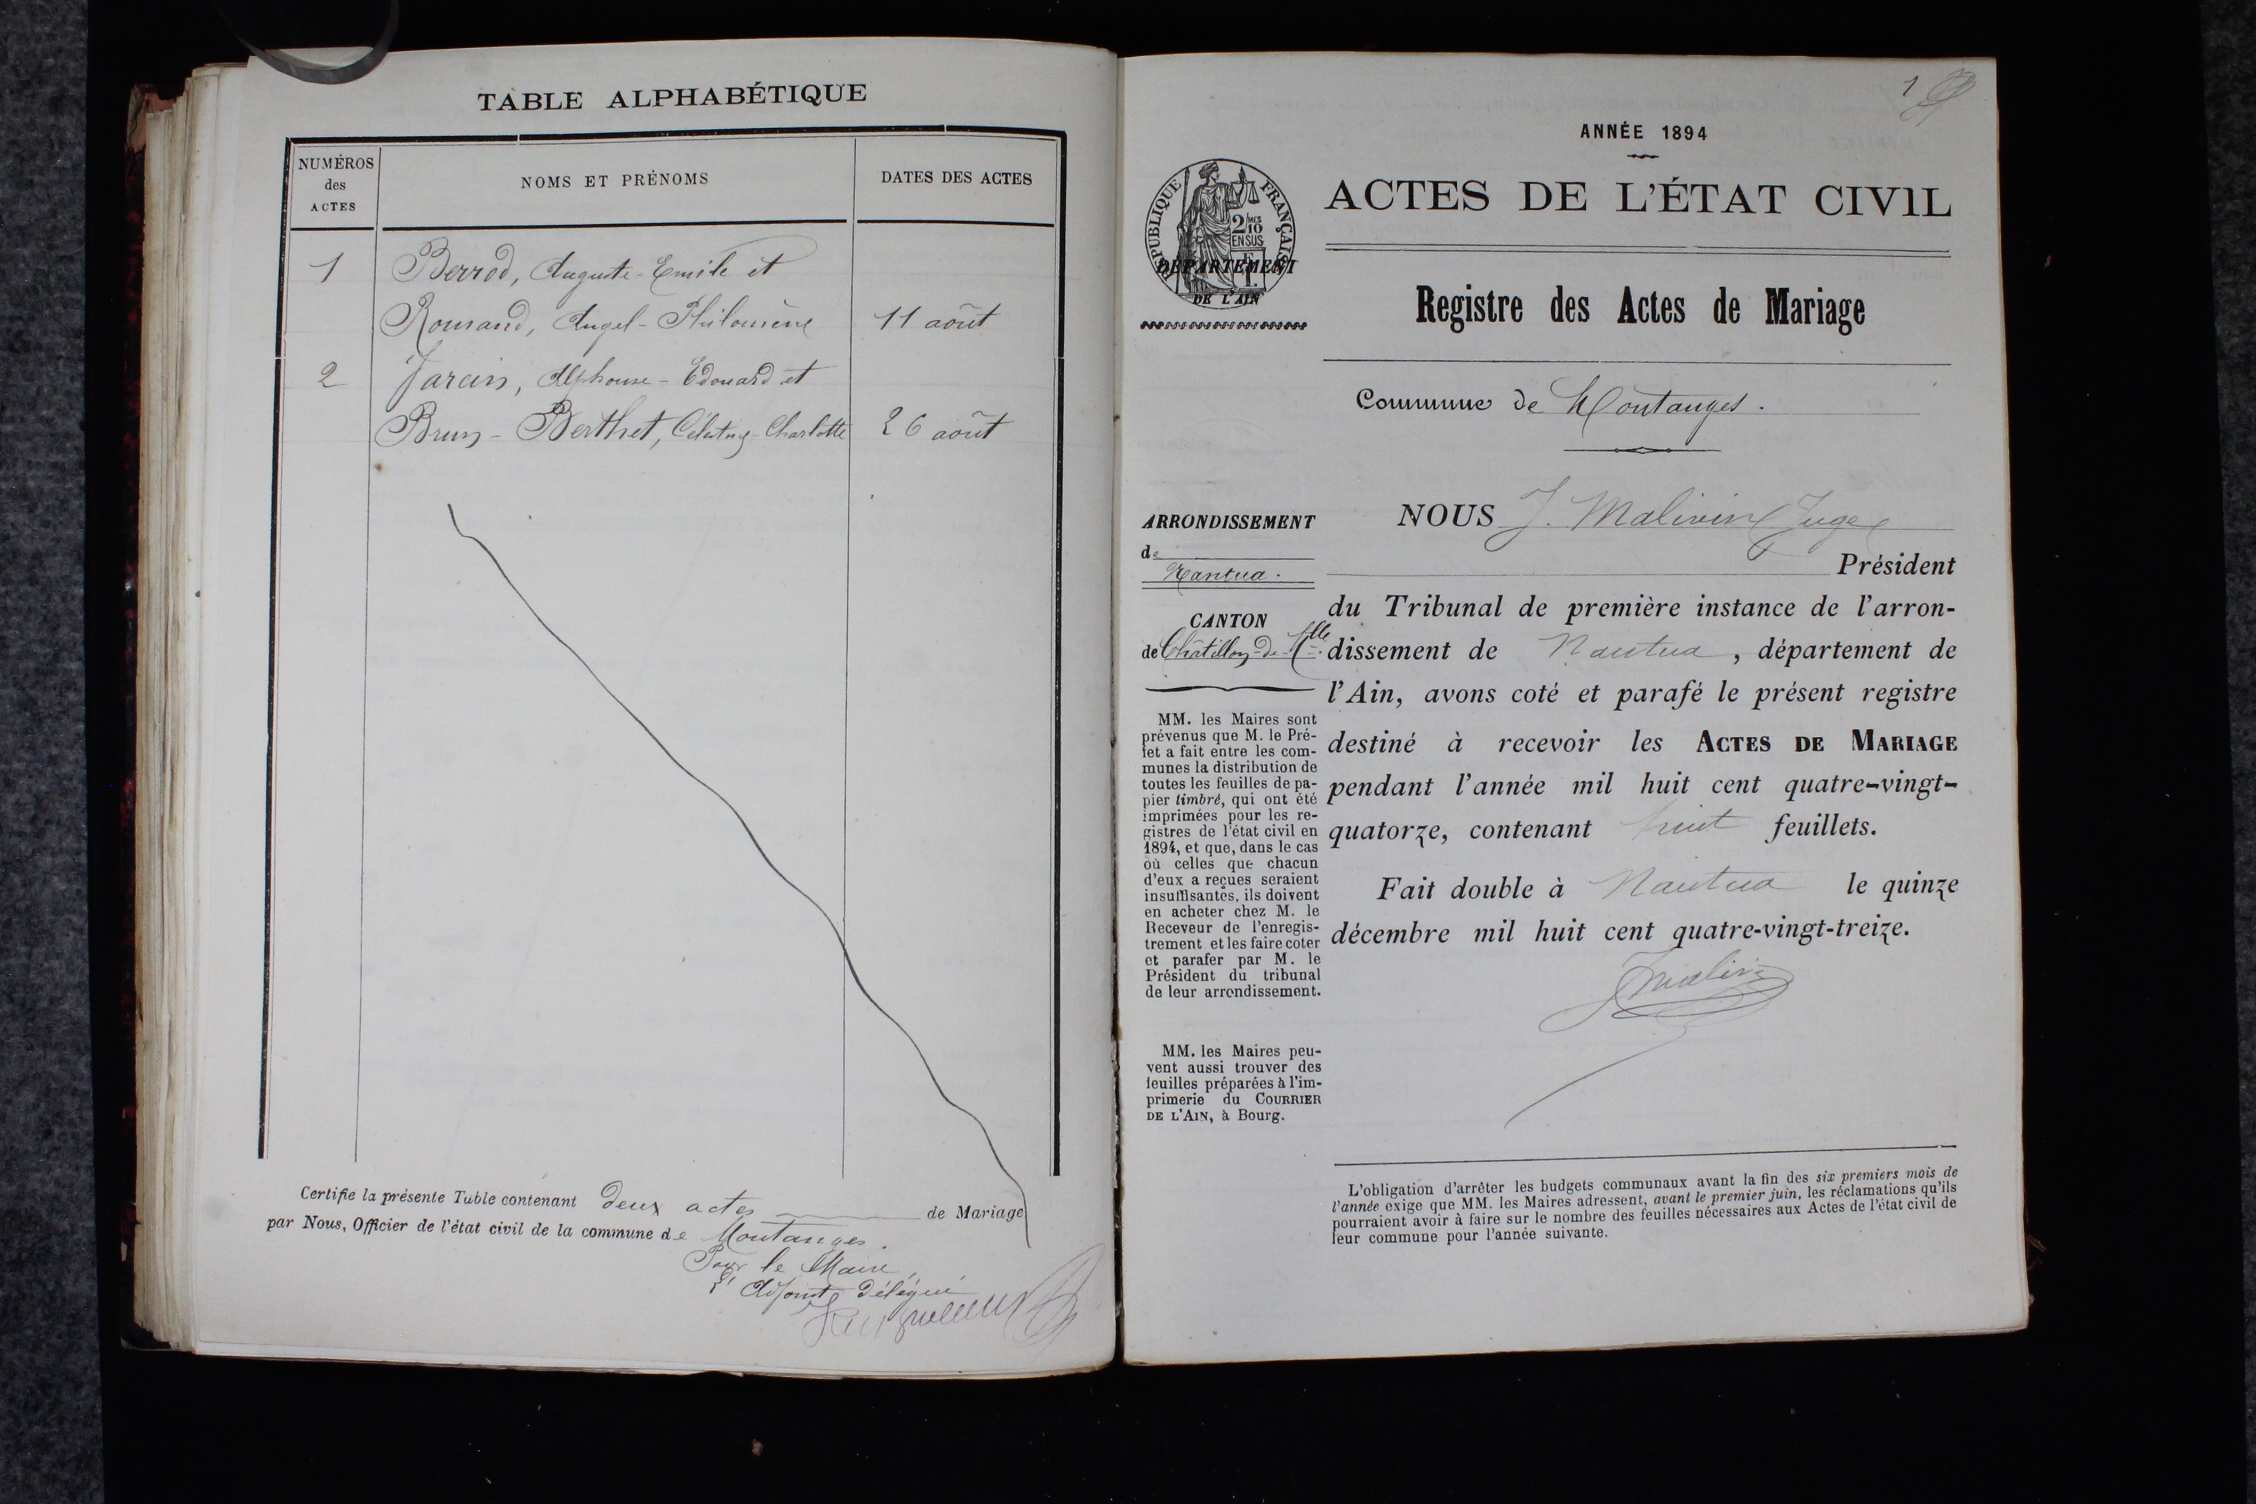 TABLE ALPHABÉTIQUE
NUMÉROS
des
ACTES
NOMS ET PRÉNOMS
DATES DES ACTES
1 Berrod, Auguste-Emile et
Romand, Angel-Philomène 11 août
2 Jarcin, Alphonse-Edouard et
Brun-Berthet, Charlotte 26 août
Certifie la présente Table contenant deux actes de Mariage
par Nous, Officier de l'état civil de la commune de Montanges.
Pour le Maire,
L'Adjoint Délégué
1
ANNÉE 1894
RÉPUBLIQUE FRANÇAISE
2/10
EN SUS
DÉPARTEMENT
DE L'AIN
ACTES DE L'ÉTAT CIVIL
Registre des Actes de Mariage
Commune de Montanges.
ARRONDISSEMENT
de
Nantua.
CANTON
de Châtillon-de-Mlle.
MM. les Maires sont
prévenus que M. le Pré-
fet a fait entre les com-
munes la distribution de
toutes les feuilles de pa-
pier timbré, qui ont été
imprimées pour les re-
gistres de l'état civil en
1894, et que, dans le cas
où celles que chacun
d'eux a reçues seraient
insuffisantes, ils doivent
en acheter chez M. le
Receveur de l'enregis-
trement et les faire coter
et parafer par M. le
Président du tribunal
de leur arrondissement.
MM. les Maires peu-
vent aussi trouver des
feuilles préparées à l'im-
primerie du COURRIER
DE L'AIN, à Bourg.
NOUS J. Malivin Juge
Président
du Tribunal de première instance de l'arron-
dissement de Nantua, département de
l'Ain, avons coté et parafé le présent registre
destiné à recevoir les ACTES DE MARIAGE
pendant l'année mil huit cent quatre-vingt-
quatorze, contenant huit feuillets.
Fait double à Nantua le quinze
décembre mil huit cent quatre-vingt-treize.
L'obligation d'arrêter les budgets communaux avant la fin des six premiers mois de
l'année exige que MM. les Maires adressent, avant le premier juin, les réclamations qu'ils
pourraient avoir à faire sur le nombre des feuilles nécessaires aux Actes de l'état civil de
leur commune pour l'année suivante.